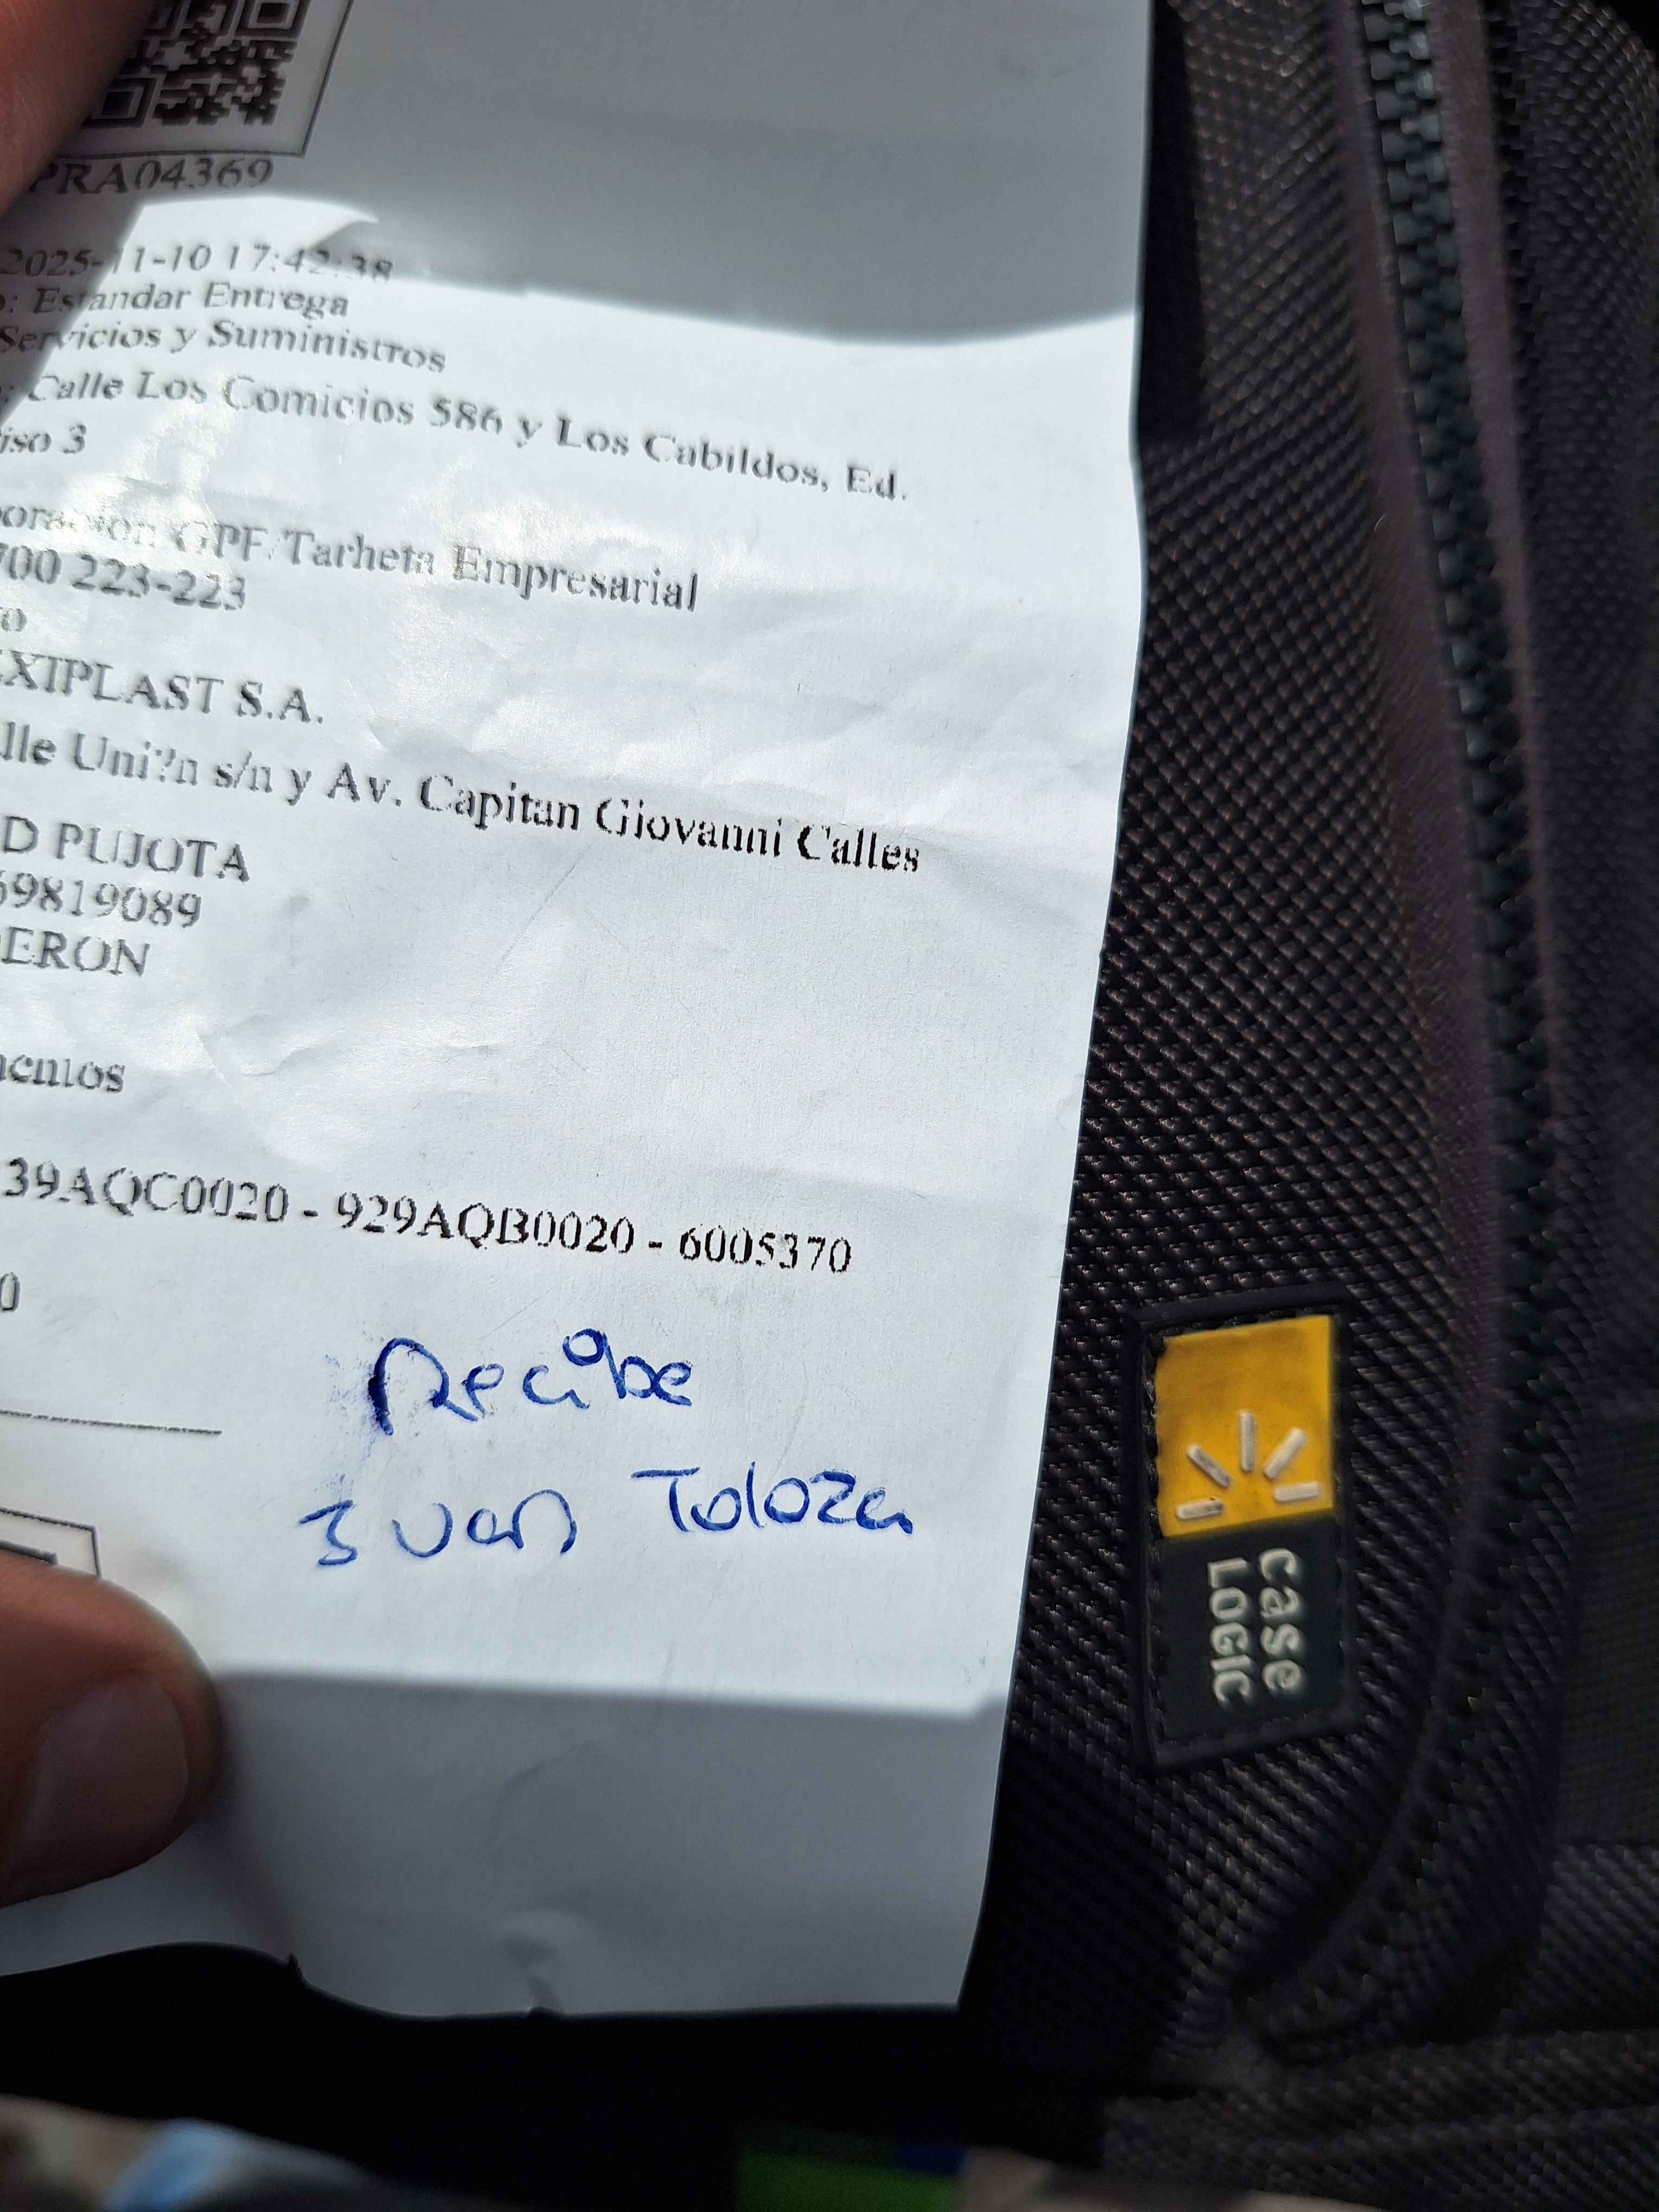 PRA04369
2025-11-10 17:42:38
o: Estandar Entrega
Servicios y Suministros
: Calle Los Comicios 586 y Los Cabildos, Ed.
iso 3
oracion GPF/Tarheta Empresarial
700 223-223
o
EXIPLAST S.A.
lle Uni?n s/n y Av. Capitan Giovanni Calles
D PUJOTA
69819089
ERON
mentos
39AQC0020 - 929AQB0020 - 6005370
0
Recibe
Juan Toloza
case
LOGIC